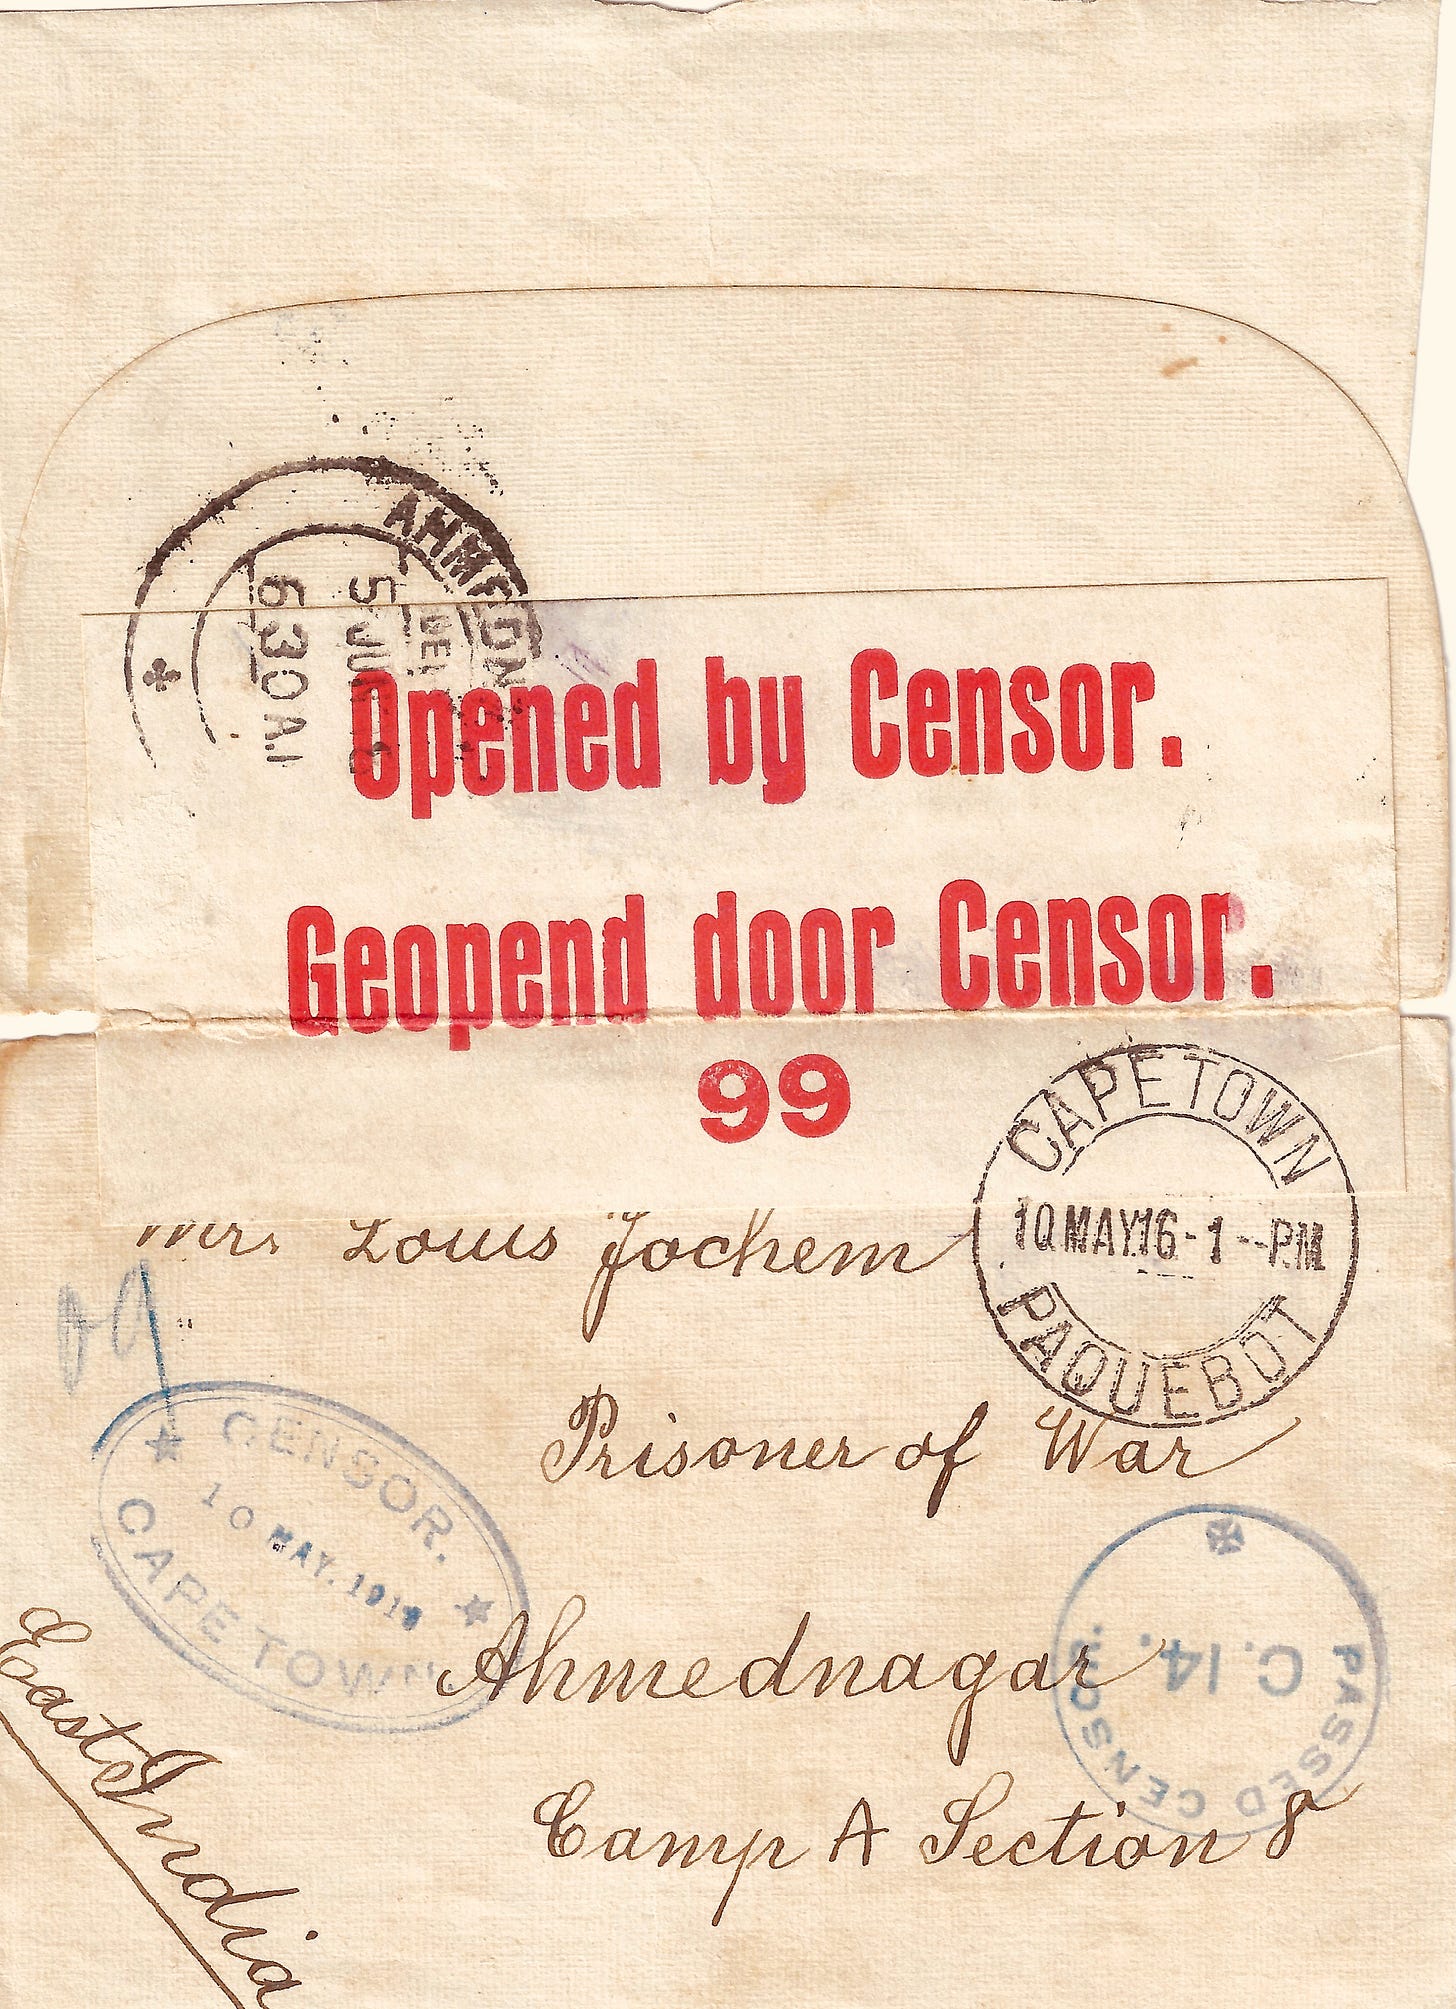 AHMEDN
5 JU
630 A
Opened by Censor.
Geopend door Censor.
99
CAPE TOWN
10 MAY 16 - 1 -- PM
PAQUEBOT
Mr. Louis Jochem
Prisoner of War
CENSOR.
10 MAY. 1916
CAPE TOWN
PASSED CENSOR.
C. 14.
Ahmednagar
Camp A Section 8
East India